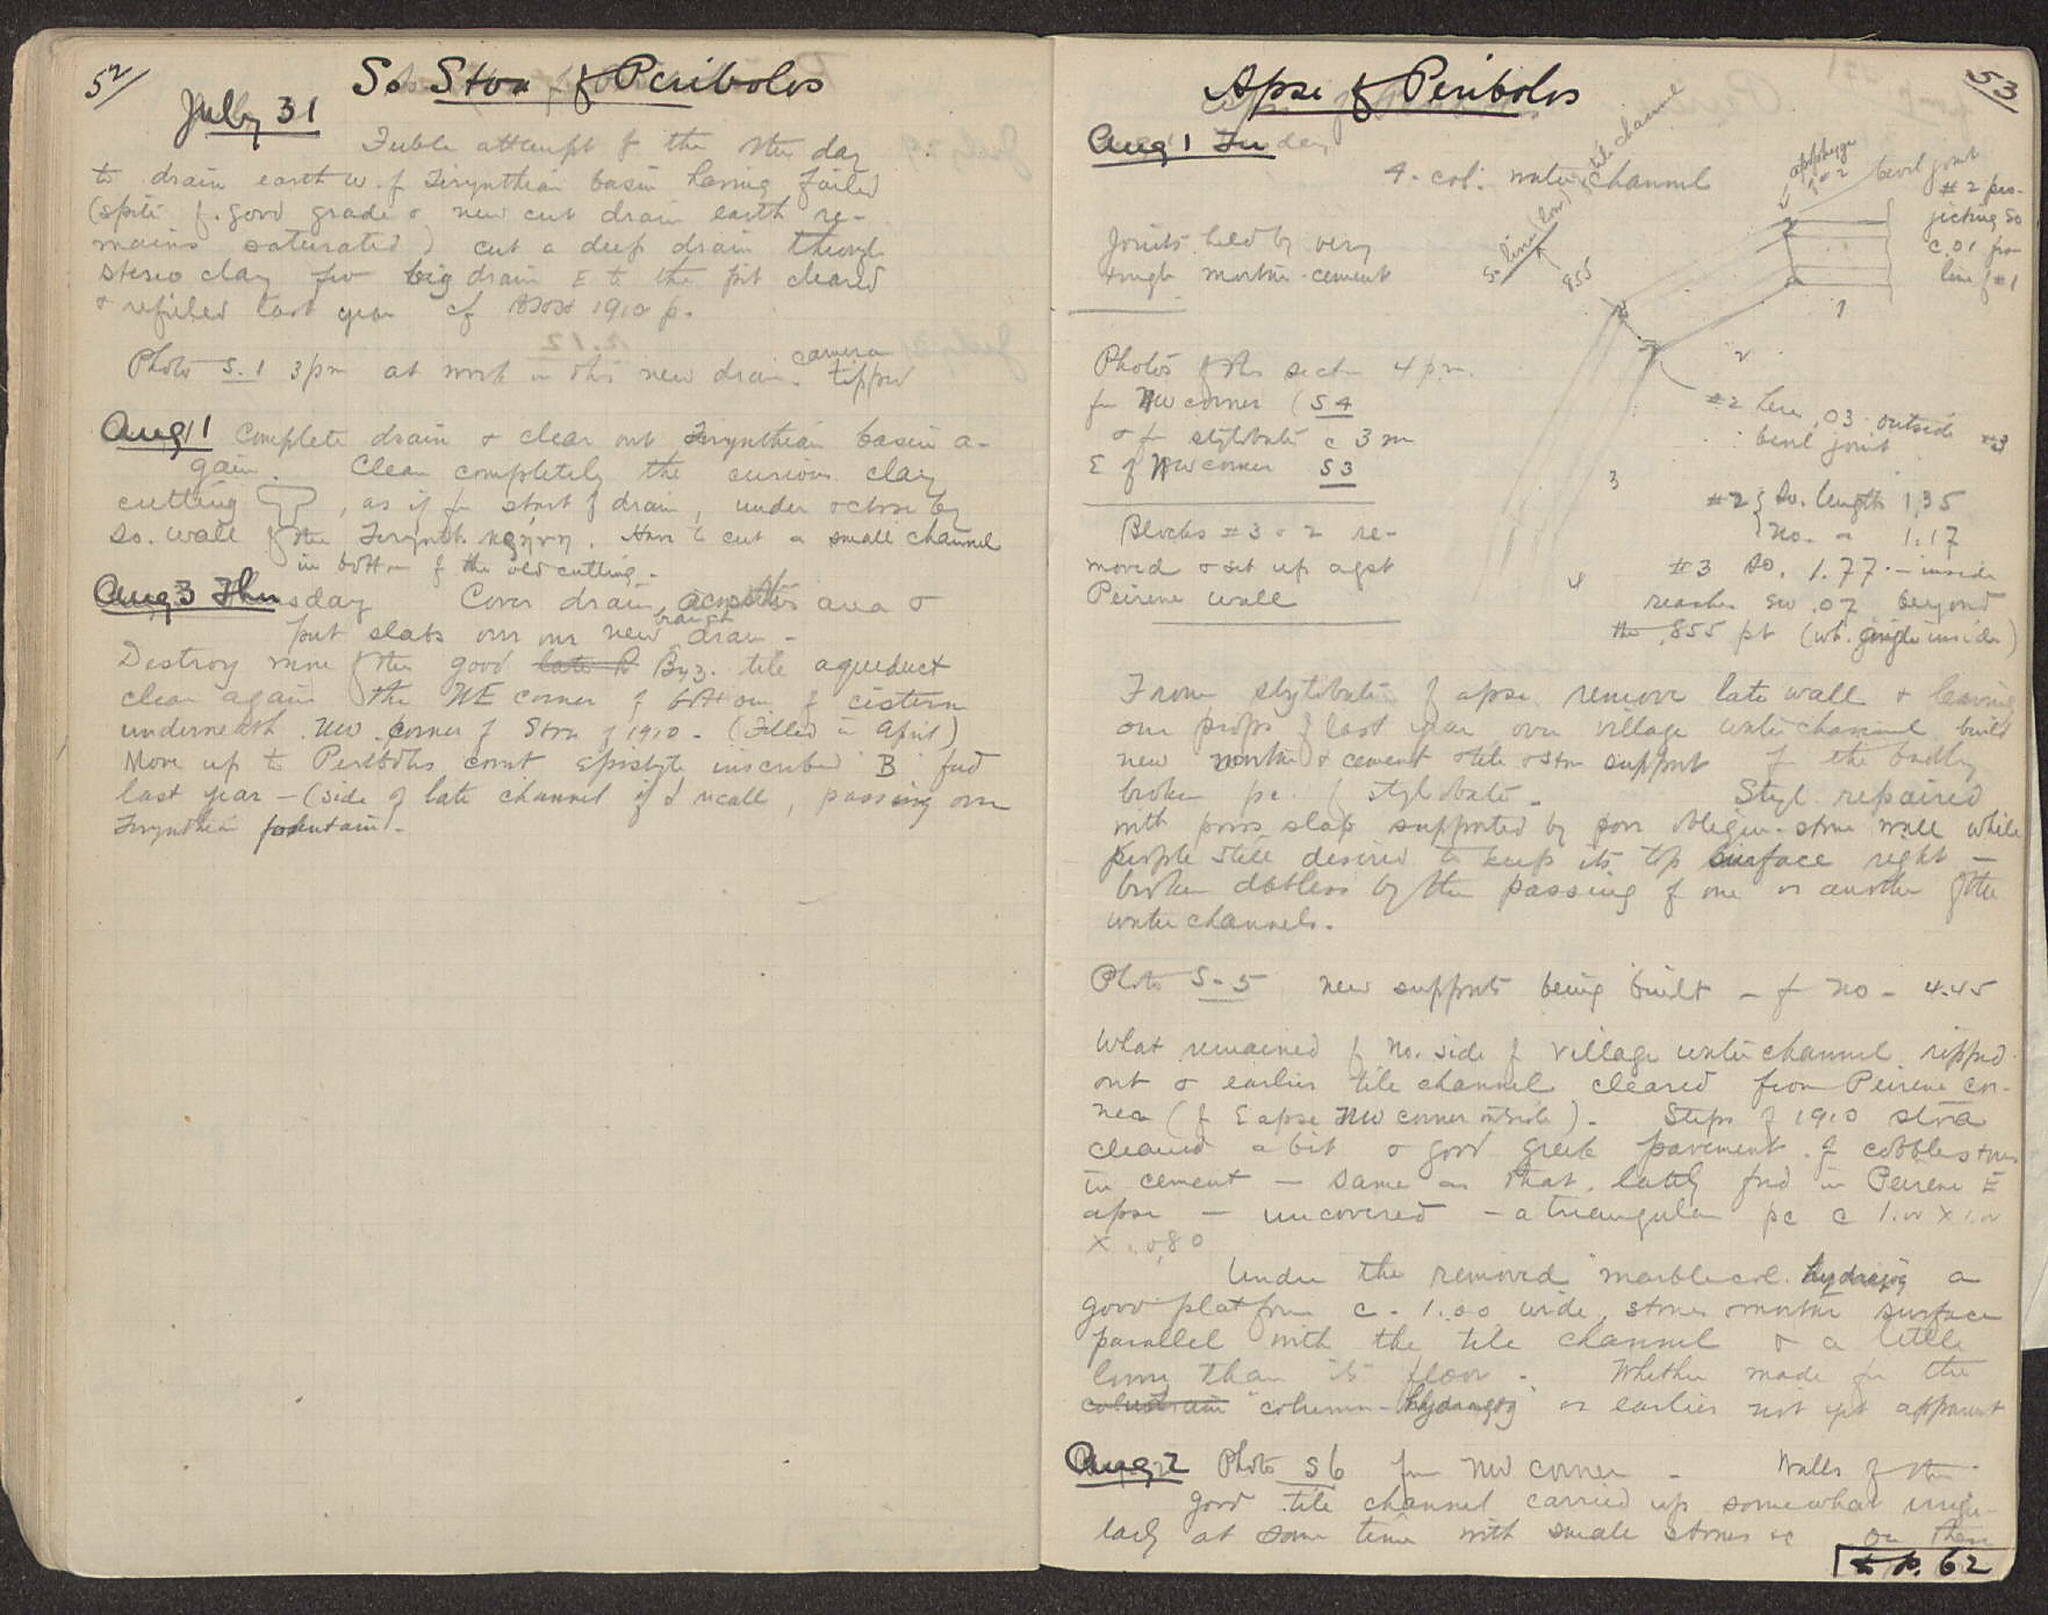 52/
So Stoa of Peribolos
July 31
Feeble attempt of the other day
to drain earth w. of Tirynthian basin having failed
(spite of good grade & new cut drain earth re-
mains saturated) cut a deep drain through
stereo clay for big drain E to the pit cleared
& refilled last year cf 1910 p.
Photo S.1 3 pm at work in this new drain. camera tipped
Aug 1 Complete drain & clear out Tirynthian basin a-
gain. Clean completely the curious clay
cutting , as if for start of drain, under & close by
So. wall of the Tirynth. κρήνη. Have to cut a small channel
in bottom of the old cutting.
Aug 3 Thursday Cover drain, across this area &
put slabs over our new branch drain -
Destroy more of the good late R Byz. tile aqueduct
clear again the NE corner of bottom of cistern
underneath NW corner of Stoa of 1910 - (Filled in April)
Move up to Peribolos court epistyle inscribed B fnd
last year - (side of late channel if I recall, passing over
Tirynthian fountain.
53
Apse of Peribolos
Aug 1 Tu day
4. col. water channel
tile channel
apophyge
1 & 2
bevil joint
#2 pro-
jecting So
c .01 from
line of #1
Joints held by very
tough mortar-cement
.855
1
2
Photos of this section 4 pm.
fr NW corner (S 4
& fr stylobate c 3 m
E of NW corner S 3
#2 here .03 outside #3
bevil joint
3
Blocks #3 & 2 re-
moved & set up agst
Peirene wall
#2 { So. length 1.35
{ No. " 1.17
4
#3 So. 1.77 - inside
reaches SW .07 beyond
the .855 pt (wh. angle inside)
From stylobate of apse remove late wall & leaving
our props of last year over village water channel build
new mortar & cement & tile & stone support of the badly
broken pc. of stylobate. Styl. repaired
with poros slab supported by poor stone wall while
people still desired to keep its top surface right -
broken dbtless by the passing of one or another of the
water channels.
Photo S-5 New supports being built - fr No - 4.45
What remained of No. side of village water channel ripped
out & earlier tile channel cleared from Peirene cor-
ner (of E apse NW corner outside). Steps of 1910 stoa
cleared a bit & good Greek pavement of cobblestones
in cement - same as that lately fnd in Peirene E
apse - uncovered - a triangular pc c 1.00 x 1.00
x 0.80
Under the removed "marble col. hydragog a
good platform c. 1.00 wide, stones & mortar surface
parallel with the tile channel & a little
lower than its floor. Whether made for the
"column-hydragog or earlier not yet apparent
Aug 2 Photo S 6 from NW corner - Walls of the
good tile channel carried up somewhat irregu-
larly at some time with small stones &c on them
& p. 62